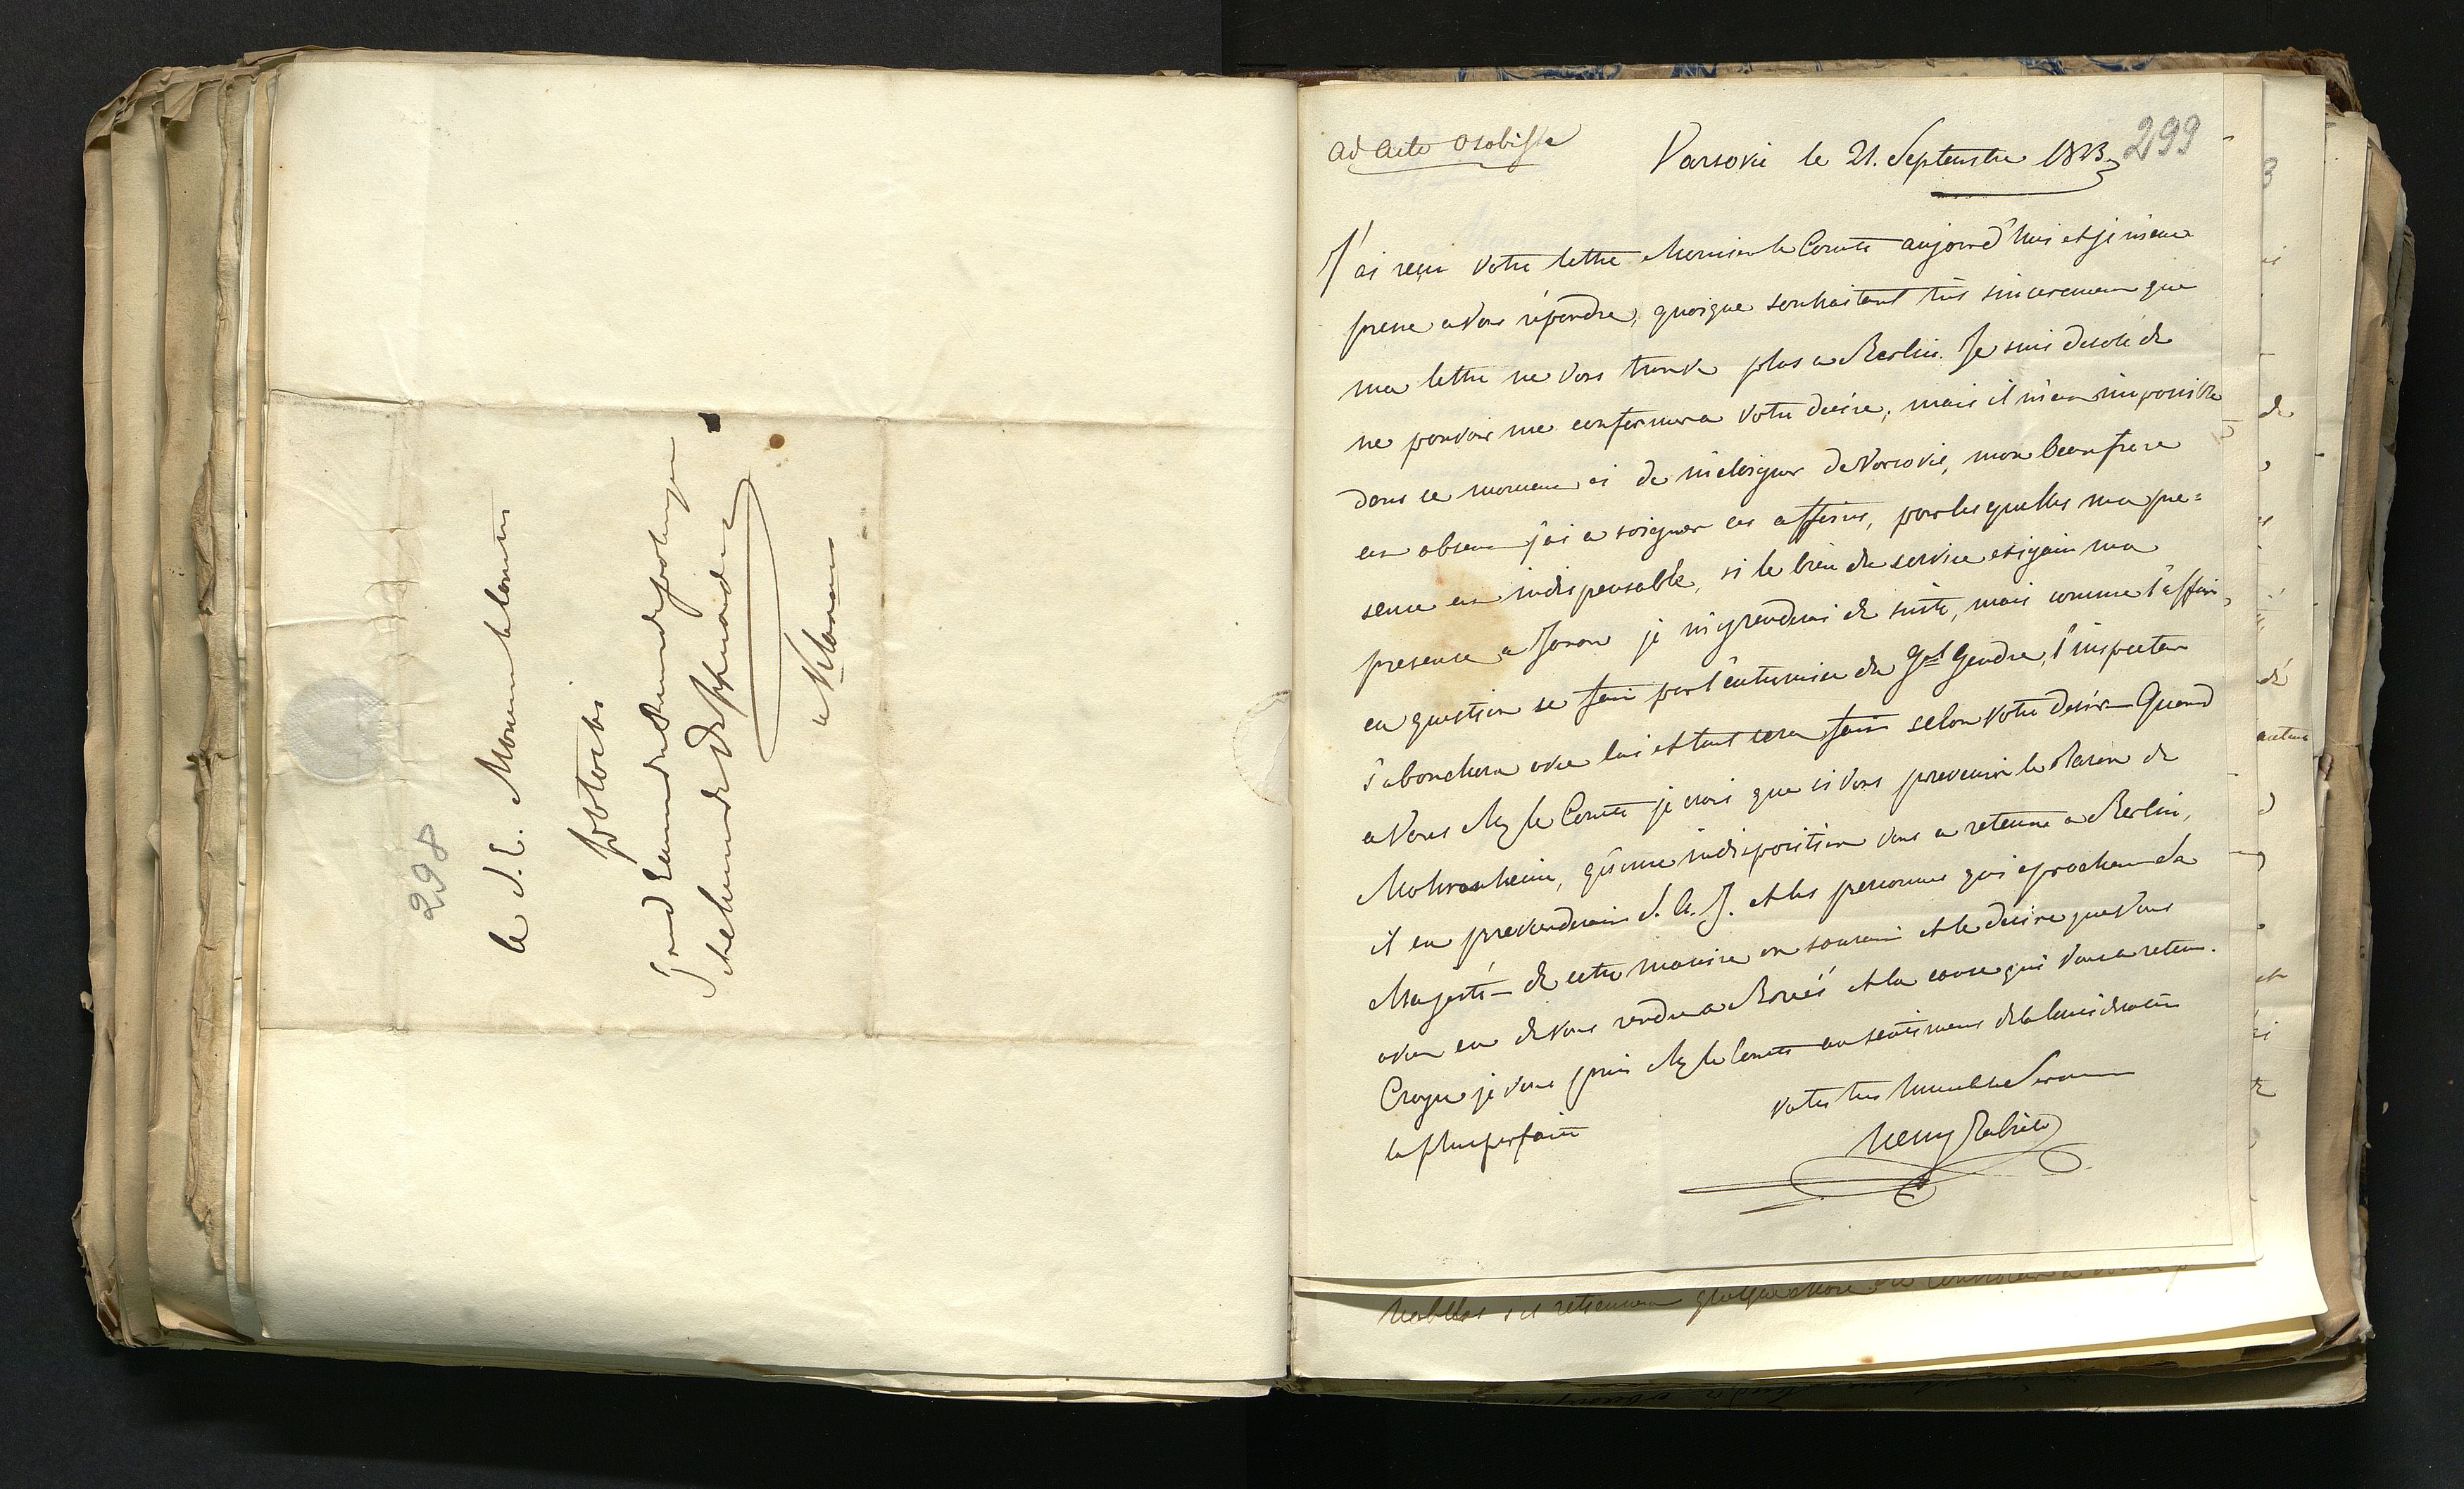 298
à S. E. Monsieur le Comte
Potocki
Grand Chambellan de Pologne
et de
à Klarow
ad acta osobiste
Varsovie le 21. Septembre 1823
299
J'ai reçu votre lettre Monsieur le Comte aujourd'hui et je m'em
presse a Vous répondre, quoique souhaitant très sincerement que
ma lettre ne Vous trouve plus a Berlin. Je suis desolé de
ne pouvoir me conformer a votre desire, mais il m'est impossible
dans ce moment ci de m'eloigner de Varsovie, mon beaufrere
est absent j'ai a soigner ces affaires, pour les quelles ma pre=
sence est indispensable, si le bien du service exigait ma
presence a Janow je m'y rendrai de suite, mais comme l'affaire
en question se fait par l'entremise du Gal Gendre, l'inspecteur
s'abouchera avec lui et tout sera fait selon votre desir Quand
a Vous Mr le Comte je crois que si Vous prevenir le Baron de
Mohrenheim, qu'une indisposition Vous a retenue a Berlin,
il en prevenderait S. A. I. et les personnes qui aprochent Sa
Majesté de cette maniere on saurait et le desire que Vous
avez eu de Vous rendre a et la cause qui Vous a retenu.
Croyez je Vous prie Mr le Comte au sentimens de la Consideration
la plus parfaite
Votre tres humble Servant